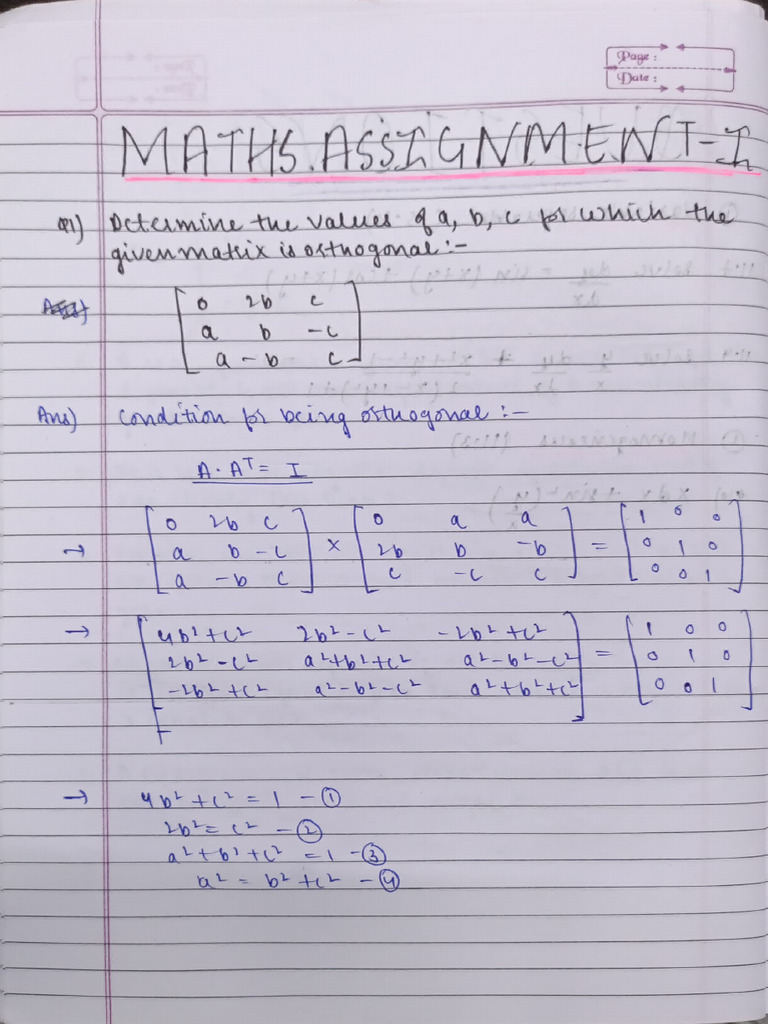 Page :
Date :
MATHS ASSIGNMENT-I
Q1) Determine the values of a, b, c for which the
given matrix is orthogonal :-
[ 0 2b c
a b -c
a -b c ]
Ans) Condition for being orthogonal :-
A · Aᵀ = I
→ [ 0 2b c ; a b -c ; a -b c ] × [ 0 a a ; 2b b -b ; c -c c ] = [ 1 0 0 ; 0 1 0 ; 0 0 1 ]
→ [ 4b²+c² 2b²-c² -2b²+c² ; 2b²-c² a²+b²+c² a²-b²-c² ; -2b²+c² a²-b²-c² a²+b²+c² ] = [ 1 0 0 ; 0 1 0 ; 0 0 1 ]
→ 4b² + c² = 1 - ①
2b² = c² - ②
a² + b² + c² = 1 - ③
a² = b² + c² - ④